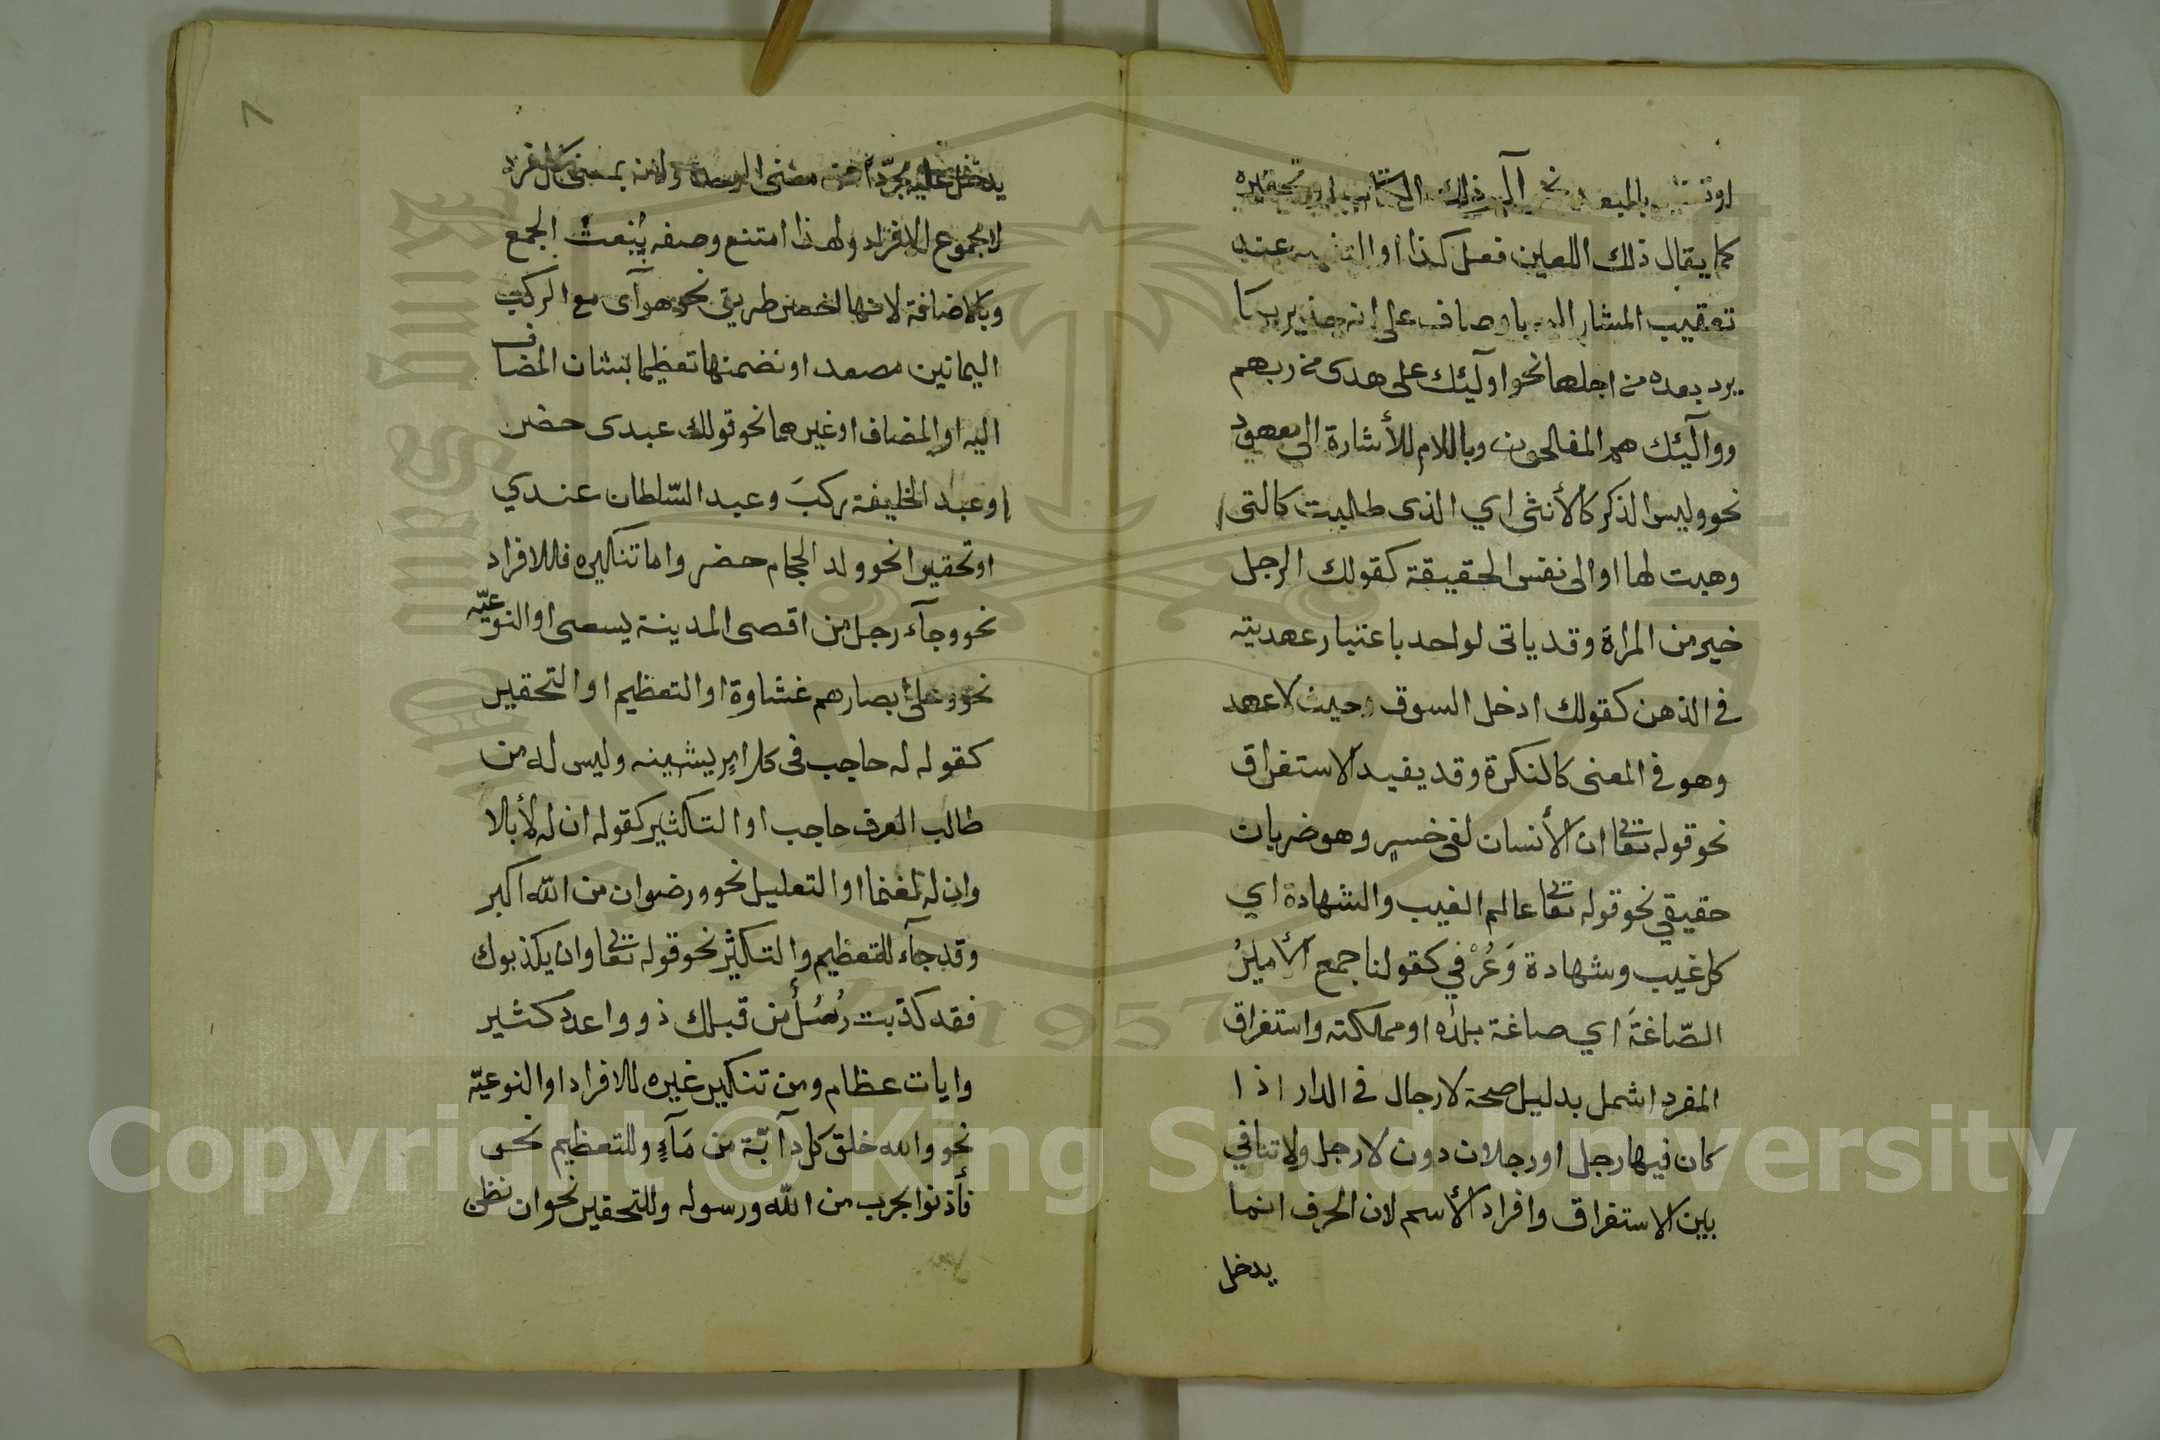 او بالبعد نحو آلم ذلك الكتاب او تحقيره
كما يقال ذلك اللعين فعل كذا او التنبيه عند
تعقيب المشار اليه باوصاف على انه جدير بما
يرد بعده من اجلها نحو اولٓئك على هدى من ربهم
وواولٓئك هم المفلحون وباللام للأشارة الى معهود
نحو وليس الذكر كالأنثى اي الذى طلبت كالتى
وهبت لها او الى نفس الحقيقة كقولك الرجل
خير من المراة وقد ياتى لواحد باعتبار عهديته
في الذهن كقولك ادخل السوق حيث لا عهد
وهو في المعنى كالنكرة وقد يفيد الاستغراق
نحو قوله تعالى ان الأنسان لفى خسر وهو ضربان
حقيقي نحو قوله تعالى عالم الغيب والشهادة اي
كل غيب وشهادة وَعُرْفي كقولنا جمع الأميرُ
الصّاغةَ اي صاغة بلده او مملكته واستغراق
المفرد اشمل بدليل صحة لا رجال في الدار اذا
كان فيها رجل او رجلان دون لا رجل ولا تنافي
بين الاستغراق وافراد الأسم لان الحرف انما
يدخل
٦
يدخل عليه مجرّدا عن معنى الوحدة ولانه بمعنى كل فرد
لا مجموع الافراد ولهذا امتنع وصفه بنعت الجمع
وبالاضافة لانها اخصر طريق نحو هوآى مع الركب
اليمانين مصعد او تضمنها تعظيما بشان المضاف
اليه او المضاف او غيرهما نحو قولك عبدى حضر
او عبد الخليفة ركبَ وعبد السّلطان عندي
او تحقيرا نحو ولد الحجام حضر واما تنكيره فللافراد
نحو وجآء رجل من اقصى المدينة يسعى او النوعيّه
نحو وعلى أبصارهم غشاوة او التعظيم او التحقير
كقوله له حاجب فى كل امرٍ يشينه وليس له من
طالب العرف حاجب او التكثير كقوله ان له لأبالا
وان له لغنما او التعليل نحو ورضوان من اللّه اكبر
وقد جآء للتعظيم والتكثير نحو قوله تعالى وان يكذبوك
فقد كذبت رُسُلٌ من قبلك ذووا عدد كثير
وايات عظام ومن تنكير غيره للافراد او النوعيّة
نحو والله خلق كل دآبّة من مَآءٍ وللتعظيم نحو
فأذنوا بحرب من اللّه ورسوله وللتحقير نحو ان نظن
Copyright © King Saud University
1957